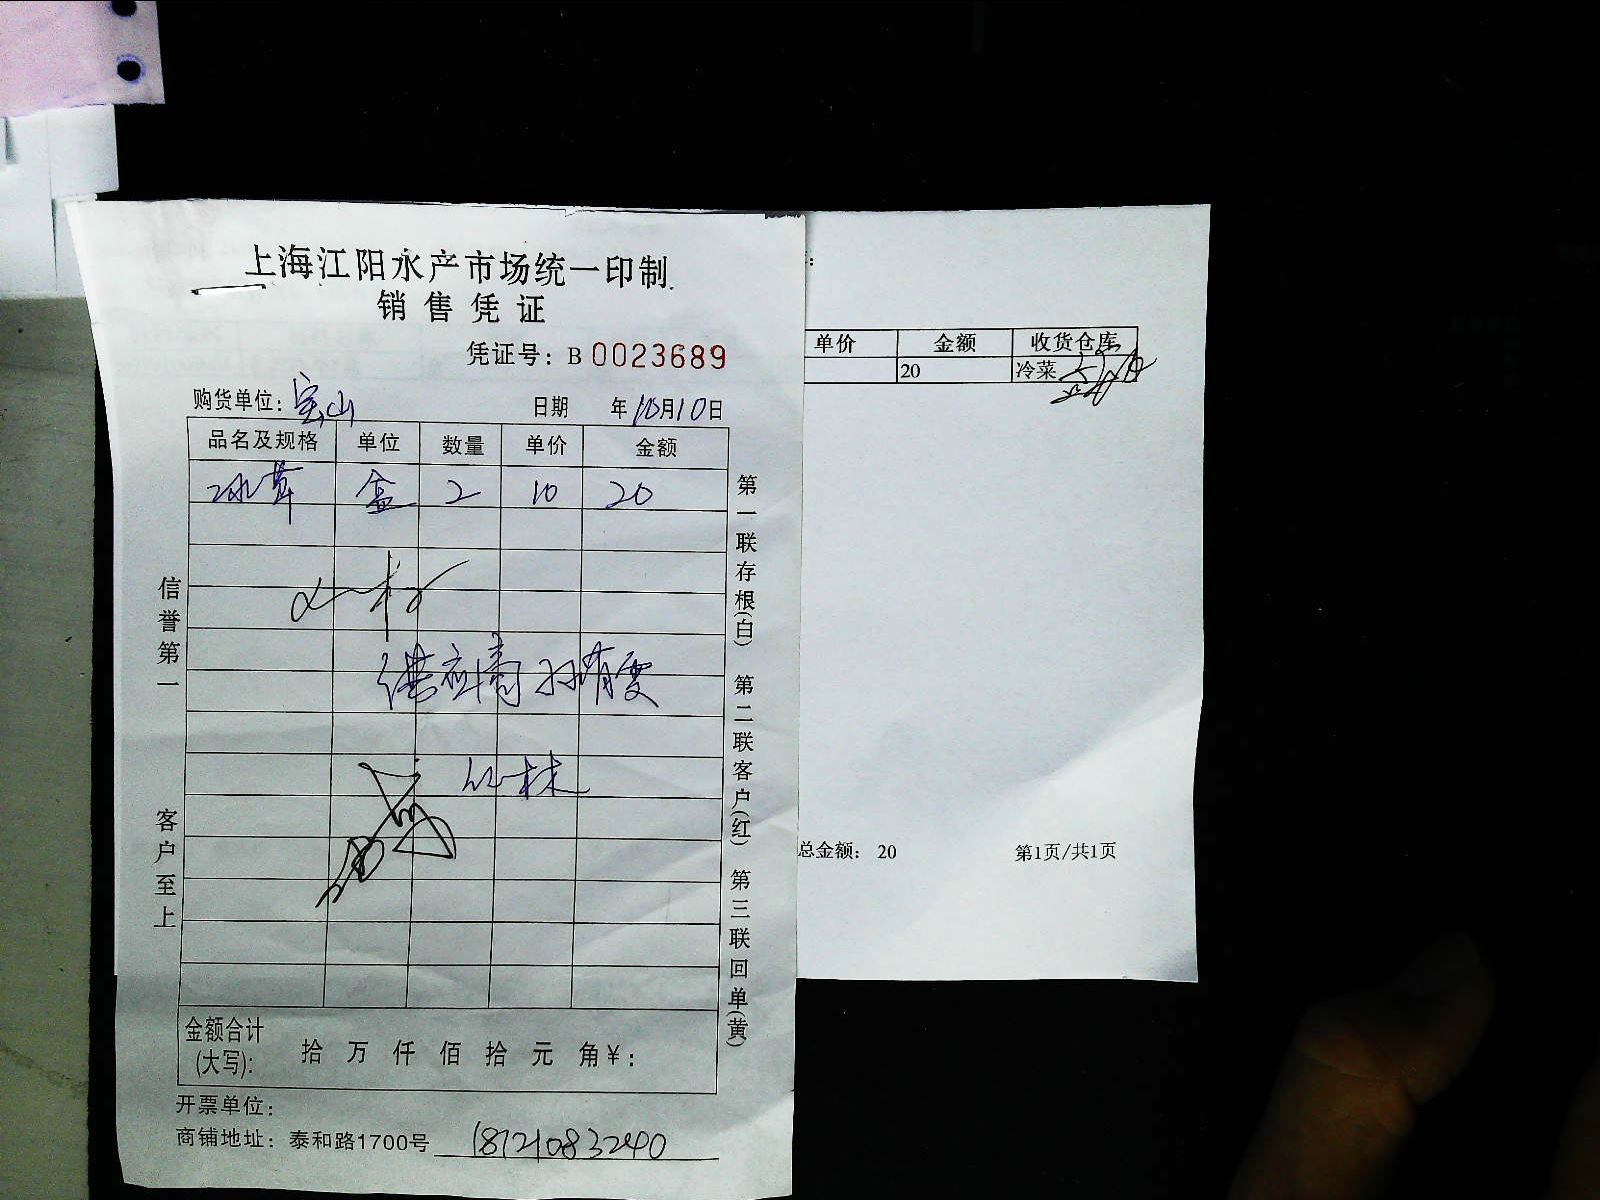 上海江阳水产市场统一印制
销售凭证
凭证号：B 0023689
购货单位：宝山 日期 年10月10日
品名及规格 单位 数量 单价 金额
冰草 盒 2 10 20
供应商
信誉第一
客户至上
第一联存根(白) 第二联客户(红) 第三联回单(黄)
金额合计
(大写)： 拾 万 仟 佰 拾 元 角 ¥：
开票单位：
商铺地址：泰和路1700号 18721083240
单价 金额 收货仓库
20 冷菜
总金额： 20 第1页/共1页